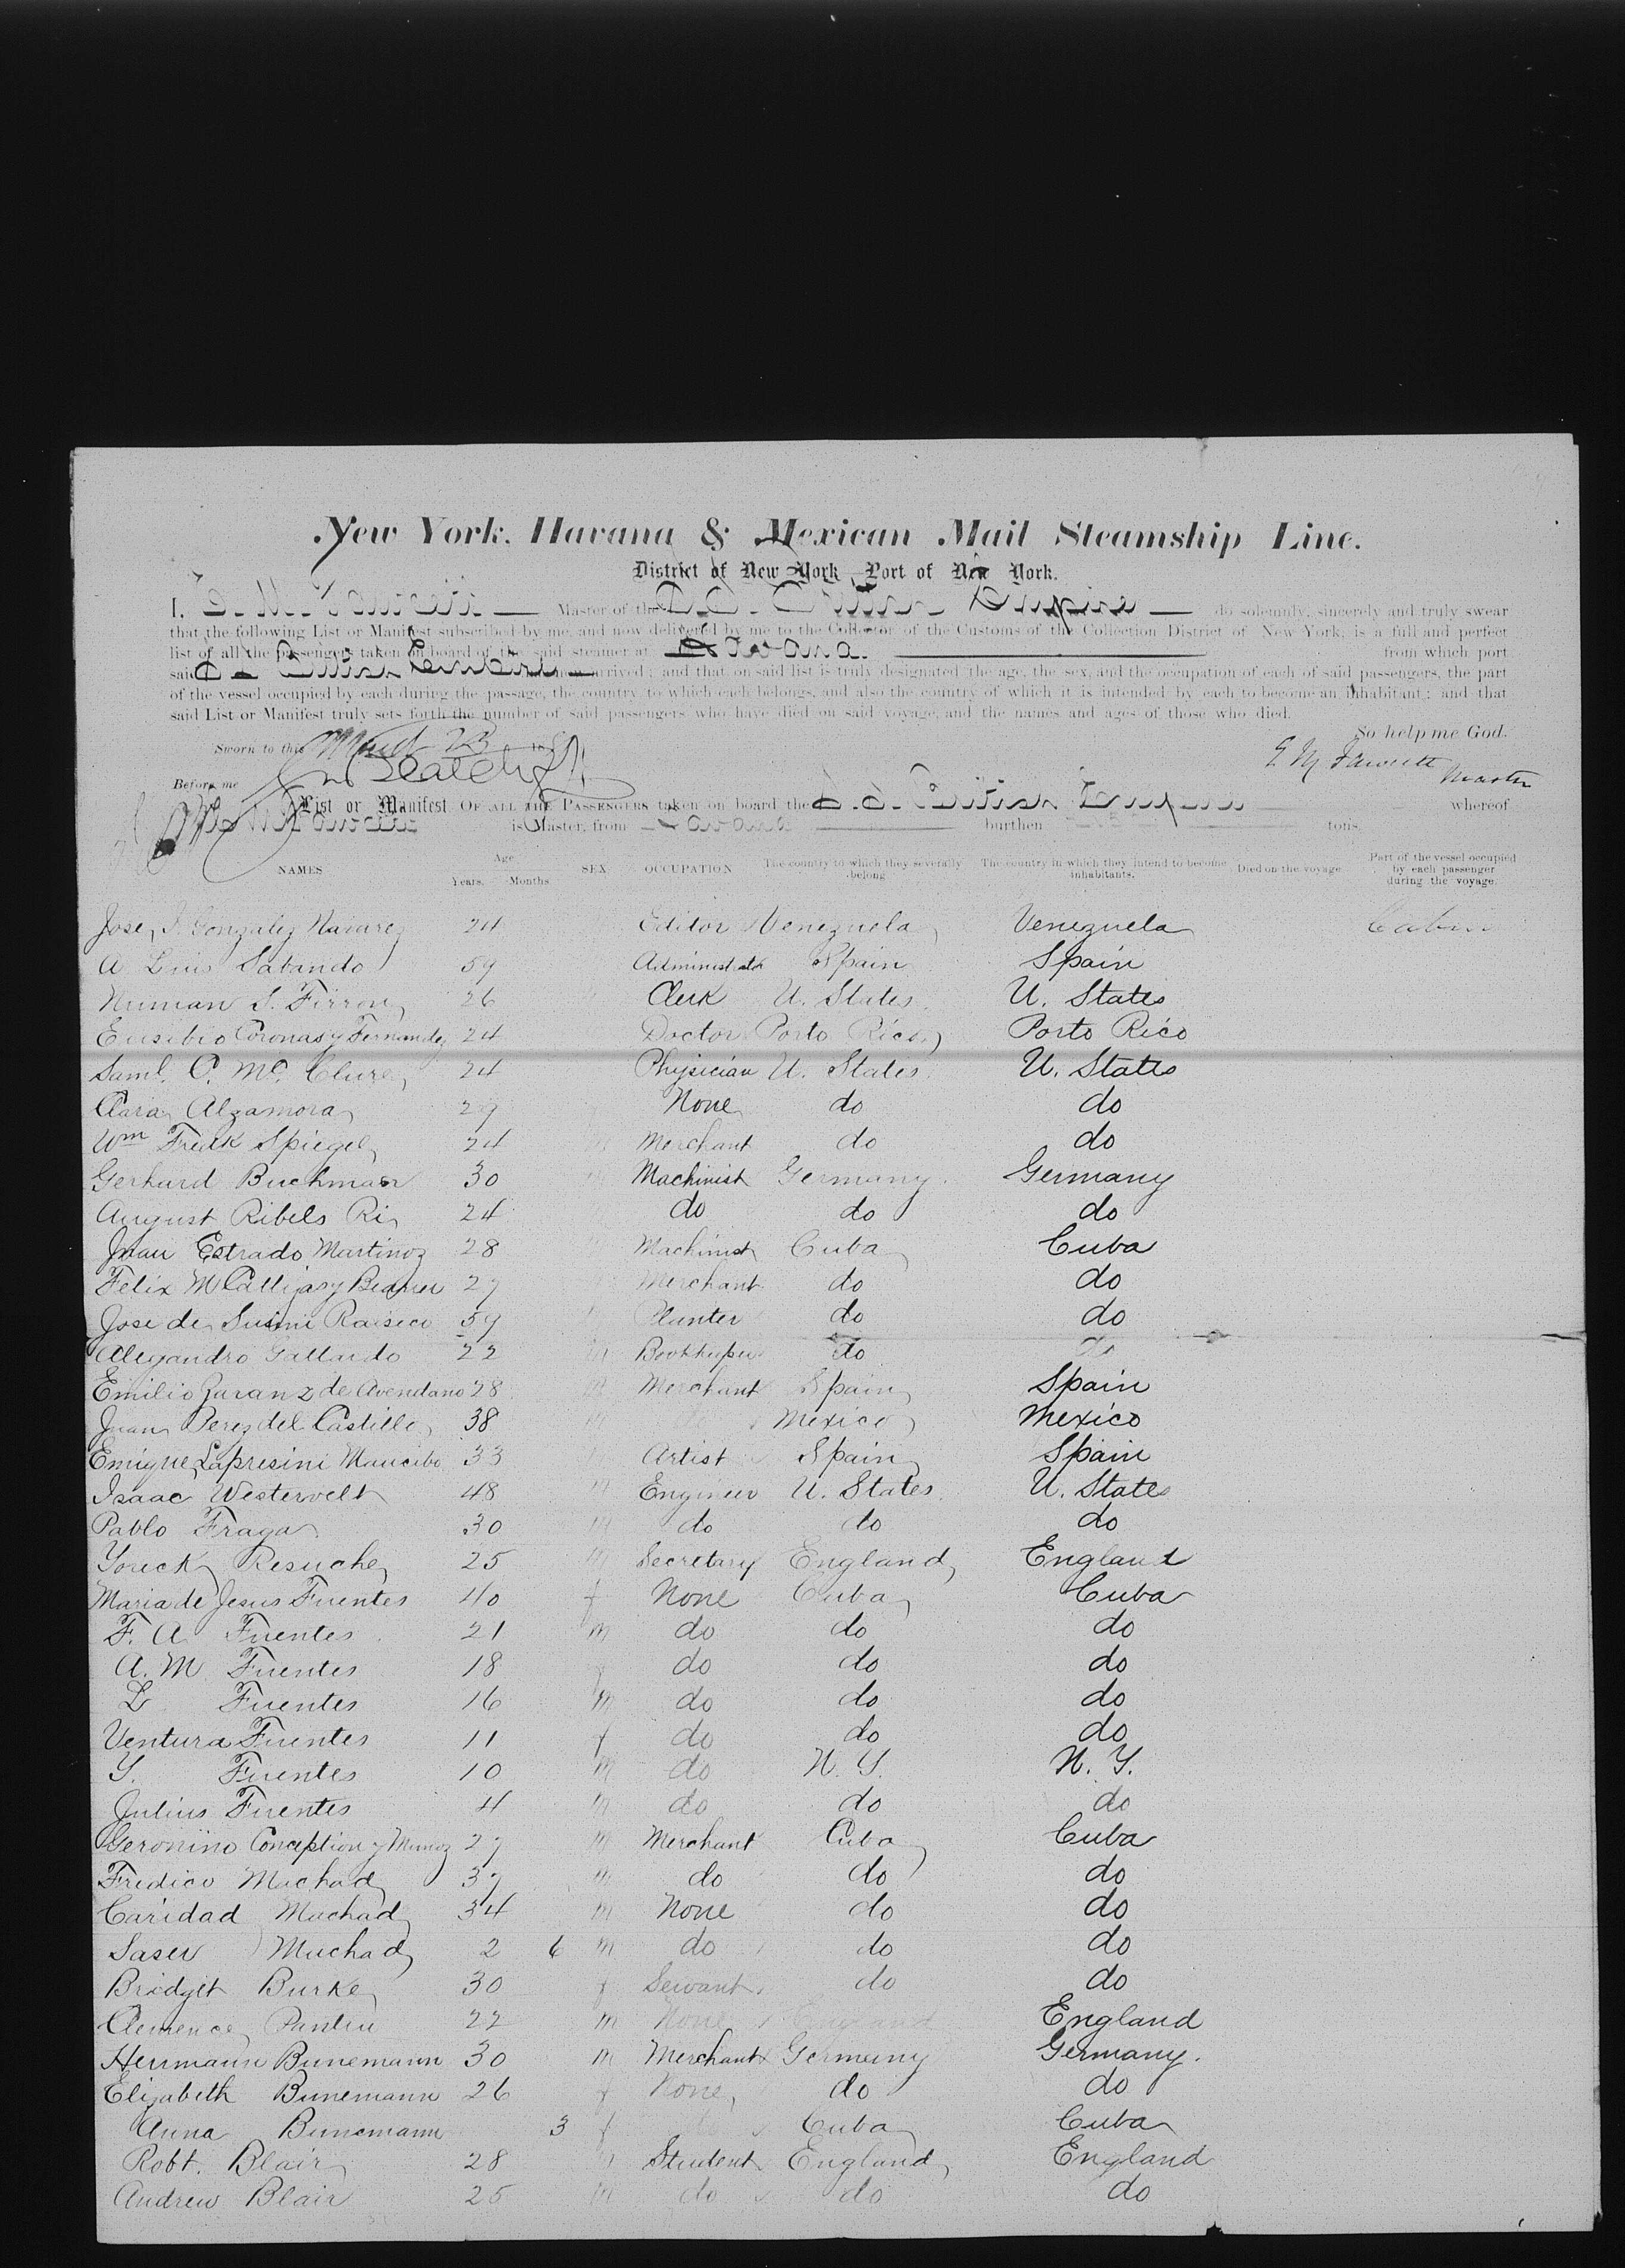 New York, Havana & Mexican Mail Steamship Line.
District of New York, Port of New York.
I, E. M. Fawcett Master of the S.S. British Empire do solemnly, sincerely and truly swear
that the following List or Manifest subscribed by me, and now delivered by me to the Collector of the Customs of the Collection District of New York, is a full and perfect
list of all the passengers taken on board of the said steamer at Havana. from which port
said S.S. British Empire has now arrived; and that on said list is truly designated the age, the sex, and the occupation of each of said passengers, the part
of the vessel occupied by each during the passage, the country to which each belongs, and also the country of which it is intended by each to become an inhabitant; and that
said List or Manifest truly sets forth the number of said passengers who have died on said voyage, and the names and ages of those who died.
So help me God.
Sworn to this 23 18
E M Fawcett
Master
Before me
List or Manifest OF ALL THE PASSENGERS taken on board the S.S. British Empire whereof
E. M. Fawcett is Master, from Havana burthen tons.
NAMES Age Years. Months SEX OCCUPATION The country to which they severally belong The country in which they intend to become inhabitants. Died on the voyage Part of the vessel occupied by each passenger during the voyage.
Jose J. Gonzalez 24 Editor Venezuela Venezuela Cabin
A Luis Sabando 59 Spain Spain
26 Clerk U. States U. States
Eusebio Coronas y Fernandez 24 Doctor Porto Rico Porto Rico
Saml. C. Mc. Clure 24 Physician U. States U. States
Clara Alzamora 29 None do do
Wm Fredk Spiegel 24 Merchant do do
Gerhard Buchman 30 Machinist Germany Germany
August Ribels 24 do do do
Juan Estrado Martinez 28 Machinist Cuba Cuba
Felix M 27 Merchant do do
Jose de Susini 59 Planter do do
Alejandro Gallardo 22 Bookkeeper do do
Emilio de Avendano 28 Merchant Spain Spain
Juan Perez del Castillo 38 m Mexico Mexico
33 Artist Spain Spain
Isaac Westervelt 48 m Engineer U. States U. States
Pablo Fraga 30 m do do do
25 m Secretary England England
Maria de Jesus Fuentes 40 f None Cuba Cuba
F. A. Fuentes 21 m do do do
A. M. Fuentes 18 f do do do
L Fuentes 16 m do do do
Ventura Fuentes 11 f do do do
Y. Fuentes 10 m do N. Y. N. Y.
Julius Fuentes 4 m do do do
Geronino Conception y Munoz 27 m Merchant Cuba Cuba
Fredico Machado 37 m do do do
Caridad Machado 34 m None do do
Machado 2 6 m do do do
Bridget Burke 30 f Servant do do
Clemence 22 m None England England
Herrmann Bunemann 30 m Merchant Germany Germany.
Elizabeth Bunemann 26 f None do do
Anna Bunemann 3 f Cuba Cuba
Robt. Blair 28 m Student England England
Andrew Blair 25 m do do do